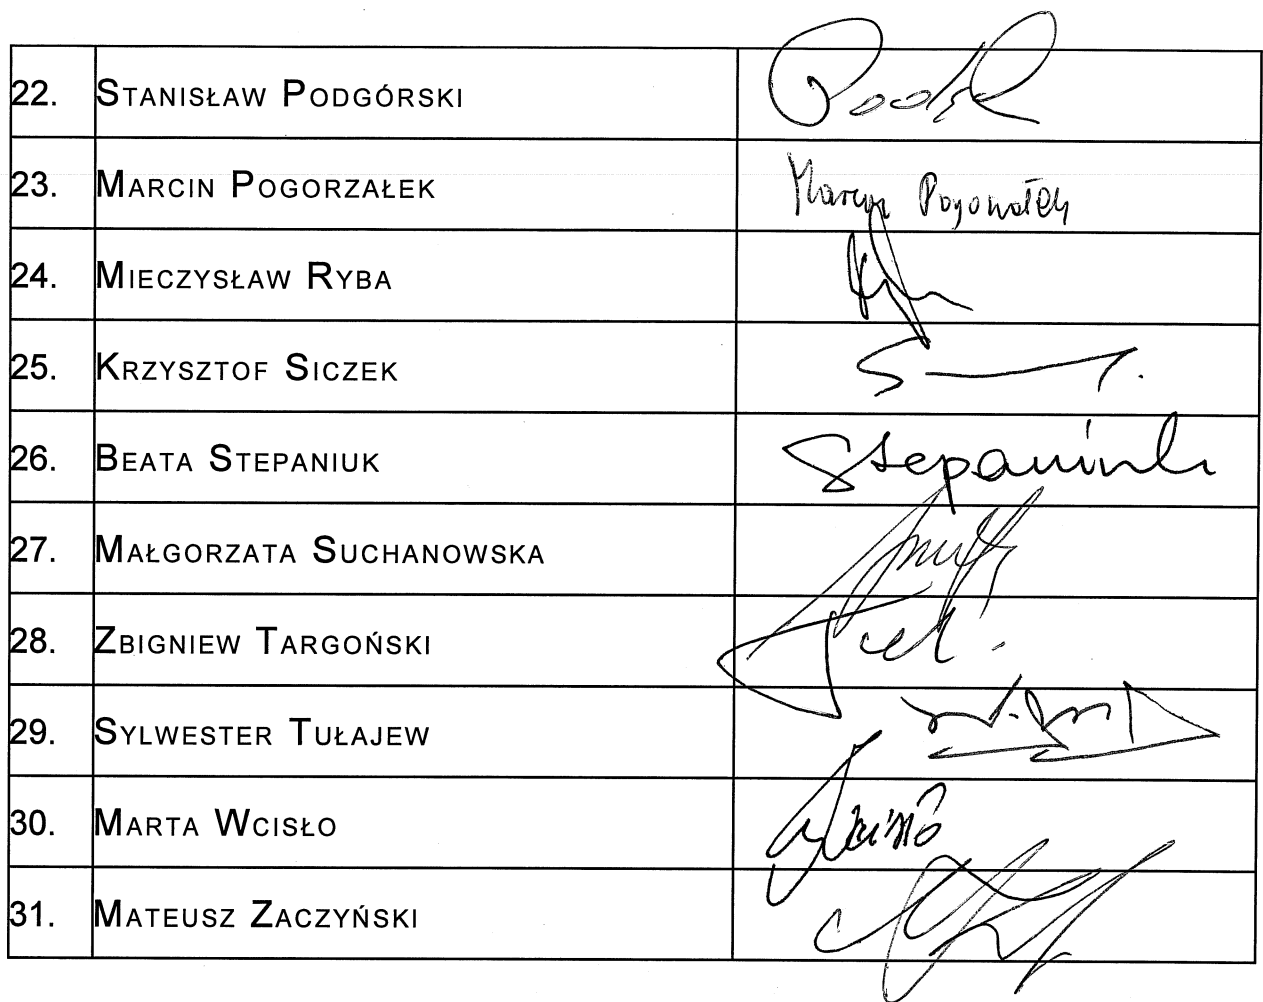 22. STANISŁAW PODGÓRSKI
23. MARCIN POGORZAŁEK Marcin Pogorzałek
24. MIECZYSŁAW RYBA
25. KRZYSZTOF SICZEK
26. BEATA STEPANIUK Stepaniuk
27. MAŁGORZATA SUCHANOWSKA
28. ZBIGNIEW TARGOŃSKI
29. SYLWESTER TUŁAJEW
30. MARTA WCISŁO
31. MATEUSZ ZACZYŃSKI